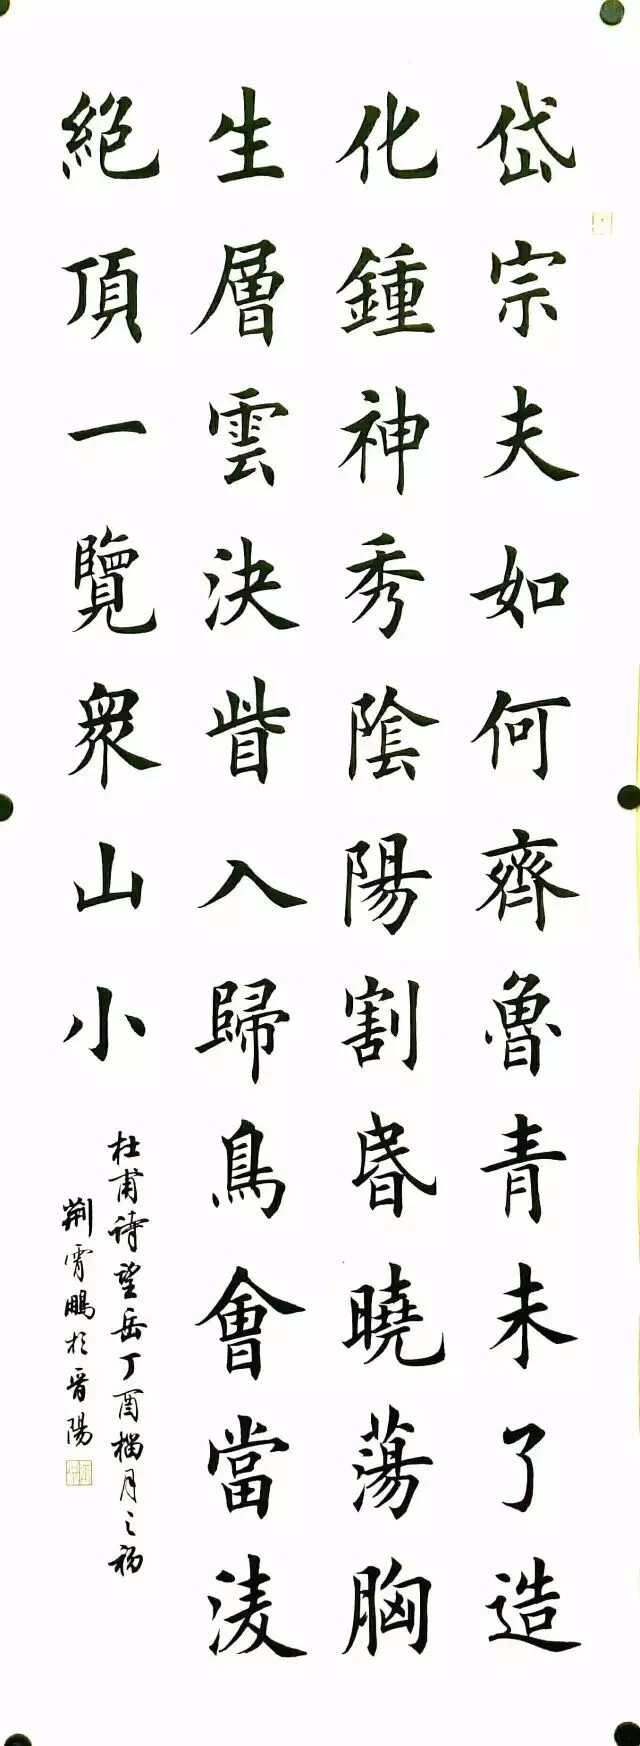 岱宗夫如何齊魯青未了造
化鍾神秀陰陽割昬曉蕩胸
生層雲決眥入歸鳥會當淩
絶頂一覽眾山小
杜甫诗望岳丁酉榴月之初
荆霄鵬於晋陽